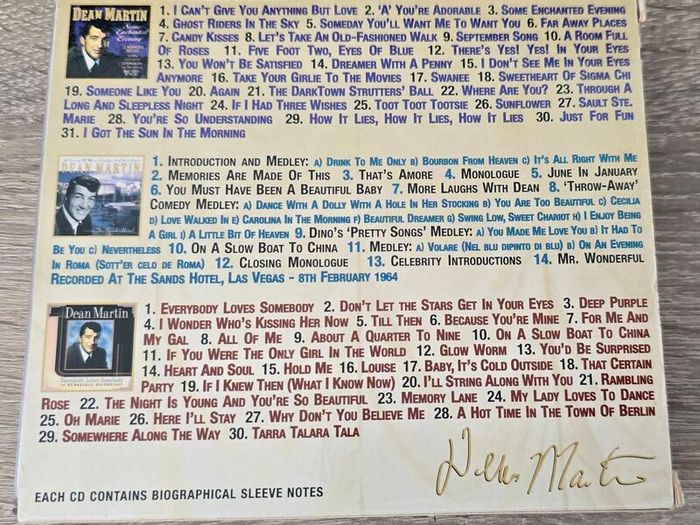 DEAN MARTIN
Some Enchanted Evening
1. I CAN'T GIVE YOU ANYTHING BUT LOVE 2. 'A' YOU'RE ADORABLE 3. SOME ENCHANTED EVENING
4. GHOST RIDERS IN THE SKY 5. SOMEDAY YOU'LL WANT ME TO WANT YOU 6. FAR AWAY PLACES
7. CANDY KISSES 8. LET'S TAKE AN OLD-FASHIONED WALK 9. SEPTEMBER SONG 10. A ROOM FULL
OF ROSES 11. FIVE FOOT TWO, EYES OF BLUE 12. THERE'S YES! YES! IN YOUR EYES
13. YOU WON'T BE SATISFIED 14. DREAMER WITH A PENNY 15. I DON'T SEE ME IN YOUR EYES
ANYMORE 16. TAKE YOUR GIRLIE TO THE MOVIES 17. SWANEE 18. SWEETHEART OF SIGMA CHI
19. SOMEONE LIKE YOU 20. AGAIN 21. THE DARKTOWN STRUTTERS' BALL 22. WHERE ARE YOU? 23. THROUGH A
LONG AND SLEEPLESS NIGHT 24. IF I HAD THREE WISHES 25. TOOT TOOT TOOTSIE 26. SUNFLOWER 27. SAULT STE.
MARIE 28. YOU'RE SO UNDERSTANDING 29. HOW IT LIES, HOW IT LIES, HOW IT LIES 30. JUST FOR FUN
31. I GOT THE SUN IN THE MORNING
DEAN MARTIN
1. INTRODUCTION AND MEDLEY: A) DRINK TO ME ONLY B) BOURBON FROM HEAVEN C) IT'S ALL RIGHT WITH ME
2. MEMORIES ARE MADE OF THIS 3. THAT'S AMORE 4. MONOLOGUE 5. JUNE IN JANUARY
6. YOU MUST HAVE BEEN A BEAUTIFUL BABY 7. MORE LAUGHS WITH DEAN 8. 'THROW-AWAY'
COMEDY MEDLEY: A) DANCE WITH A DOLLY WITH A HOLE IN HER STOCKING B) YOU ARE TOO BEAUTIFUL C) CECILIA
D) LOVE WALKED IN E) CAROLINA IN THE MORNING F) BEAUTIFUL DREAMER G) SWING LOW, SWEET CHARIOT H) I ENJOY BEING
A GIRL I) A LITTLE BIT OF HEAVEN 9. DINO'S 'PRETTY SONGS' MEDLEY: A) YOU MADE ME LOVE YOU B) IT HAD TO
BE YOU C) NEVERTHELESS 10. ON A SLOW BOAT TO CHINA 11. MEDLEY: A) VOLARE (NEL BLU DIPINTO DI BLU) B) ON AN EVENING
IN ROMA (SOTT'ER CELO DE ROMA) 12. CLOSING MONOLOGUE 13. CELEBRITY INTRODUCTIONS 14. MR. WONDERFUL
RECORDED AT THE SANDS HOTEL, LAS VEGAS - 8TH FEBRUARY 1964
Dean Martin
Everybody Loves Somebody
1. EVERYBODY LOVES SOMEBODY 2. DON'T LET THE STARS GET IN YOUR EYES 3. DEEP PURPLE
4. I WONDER WHO'S KISSING HER NOW 5. TILL THEN 6. BECAUSE YOU'RE MINE 7. FOR ME AND
MY GAL 8. ALL OF ME 9. ABOUT A QUARTER TO NINE 10. ON A SLOW BOAT TO CHINA
11. IF YOU WERE THE ONLY GIRL IN THE WORLD 12. GLOW WORM 13. YOU'D BE SURPRISED
14. HEART AND SOUL 15. HOLD ME 16. LOUISE 17. BABY, IT'S COLD OUTSIDE 18. THAT CERTAIN
PARTY 19. IF I KNEW THEN (WHAT I KNOW NOW) 20. I'LL STRING ALONG WITH YOU 21. RAMBLING
ROSE 22. THE NIGHT IS YOUNG AND YOU'RE SO BEAUTIFUL 23. MEMORY LANE 24. MY LADY LOVES TO DANCE
25. OH MARIE 26. HERE I'LL STAY 27. WHY DON'T YOU BELIEVE ME 28. A HOT TIME IN THE TOWN OF BERLIN
29. SOMEWHERE ALONG THE WAY 30. TARRA TALARA TALA
Dean Martin
EACH CD CONTAINS BIOGRAPHICAL SLEEVE NOTES